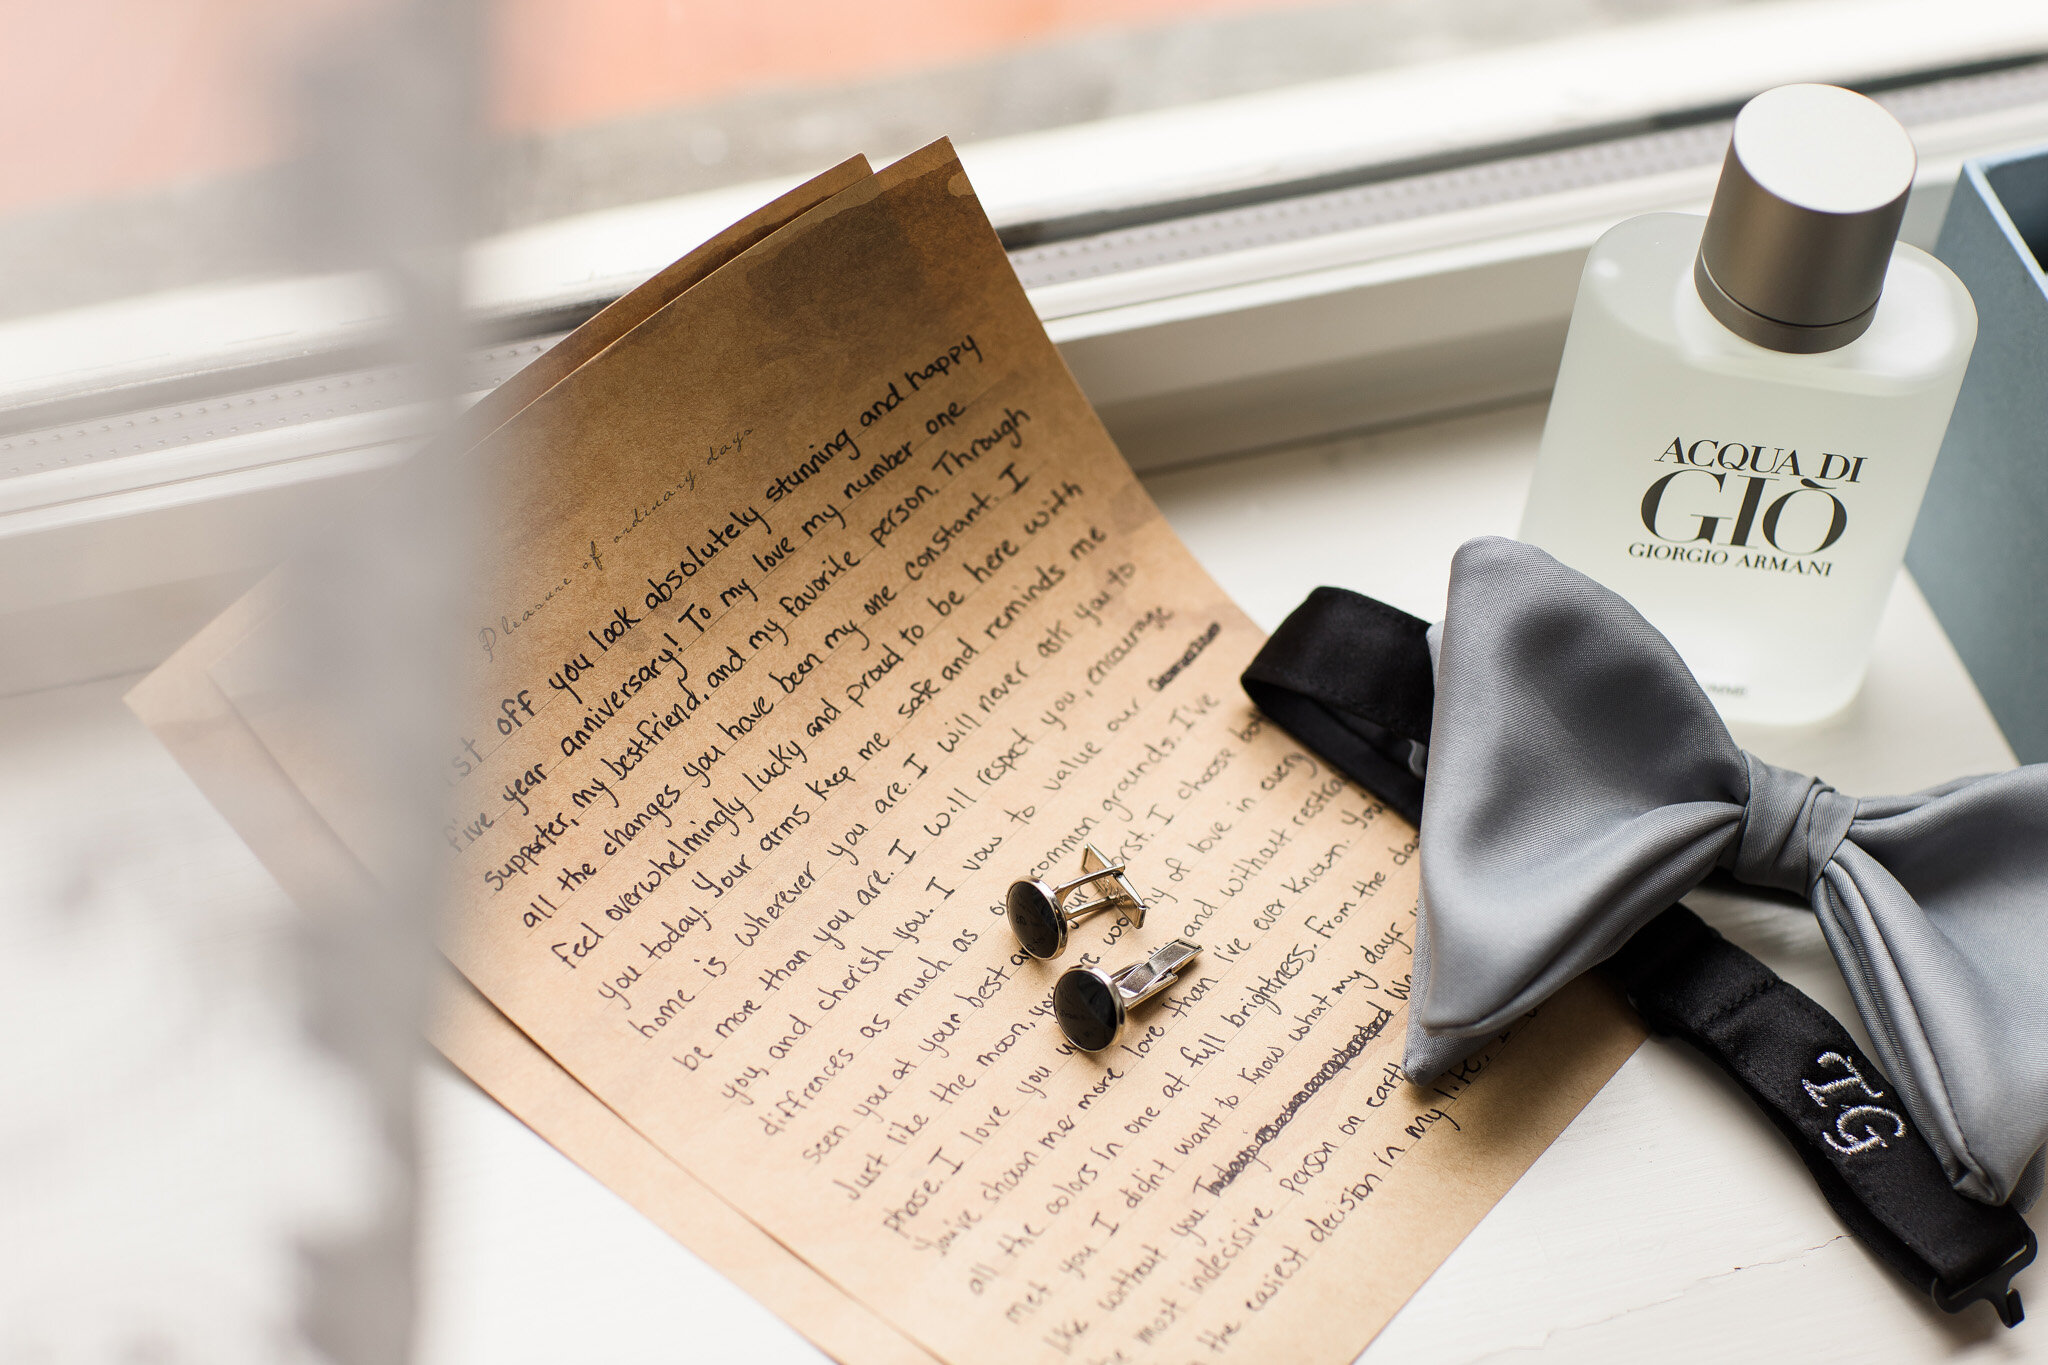 Pleasure of ordinary days
off you look absolutely stunning and happy
five year anniversary! To my love my number one
supporter, my bestfriend, and my favorite person. Through
all the changes you have been my one constant. I
feel overwhelmingly lucky and proud to be here with
you today. Your arms keep me safe and reminds me
home is wherever you are. I will never ask you to
be more than you are. I will respect you, encourage
you, and cherish you. I vow to value our
diffrences as much as common grounds. I've
seen you at your best your I choose
Just like the moon, of love in every
phase. I love you and without
you've shown me more love than I've ever known.
all the colors in one at full brightness. From the
met you I didn't want to know what my days
like without you. Today
most indecisive person on earth
the easiest decision in my life.
ACQUA DI
GIÒ
GIORGIO ARMANI
TG